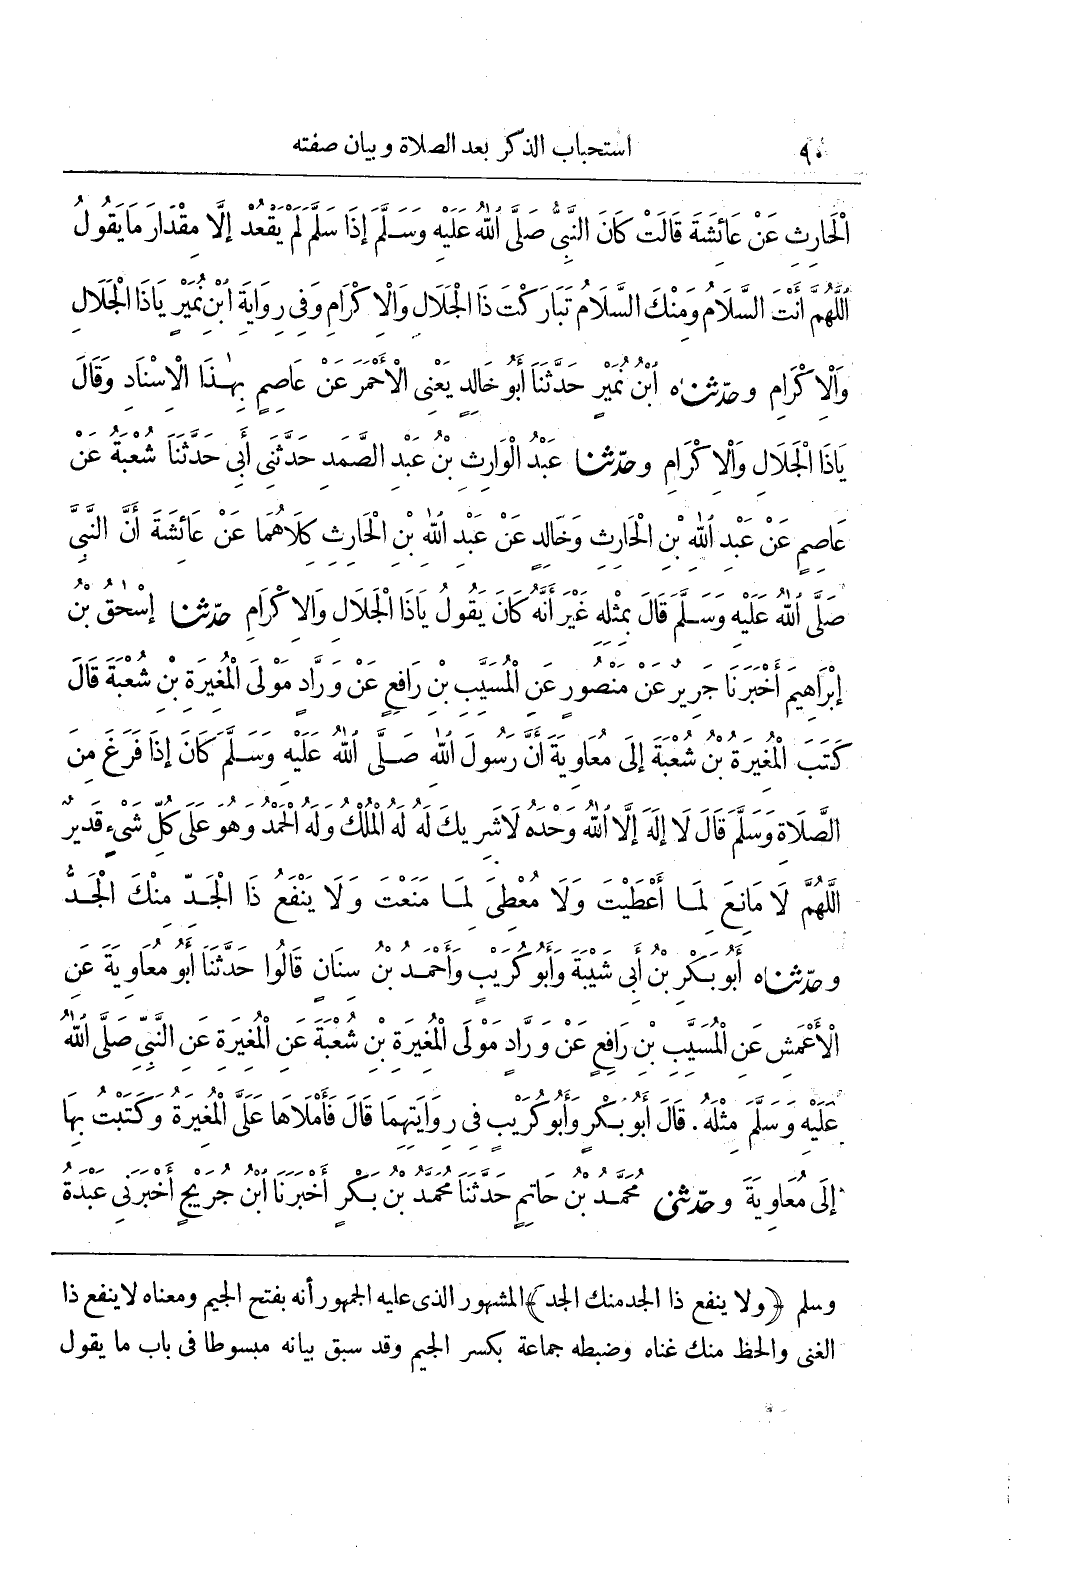 ٩٠ استحباب الذكر بعد الصلاة وبيان صفته
الْحَارِثِ عَنْ عَائِشَةَ قَالَتْ كَانَ النَّبِيُّ صَلَّى اللهُ عَلَيْهِ وَسَلَّمَ إِذَا سَلَّمَ لَمْ يَقْعُدْ إِلَّا مِقْدَارَ مَا يَقُولُ
اللَّهُمَّ أَنْتَ السَّلَامُ وَمِنْكَ السَّلَامُ تَبَارَكْتَ ذَا الْجَلَالِ وَالْإِكْرَامِ وَفِى رِوَايَةِ ابْنِ نُمَيْرٍ يَاذَا الْجَلَالِ
وَالْإِكْرَامِ و حَدَّثَنَاهُ ابْنُ نُمَيْرٍ حَدَّثَنَا أَبُو خَالِدٍ يَعْنِى الْأَحْمَرَ عَنْ عَاصِمٍ بِهٰذَا الْإِسْنَادِ وَقَالَ
يَاذَا الْجَلَالِ وَالْإِكْرَامِ و حَدَّثَنَا عَبْدُ الْوَارِثِ بْنُ عَبْدِ الصَّمَدِ حَدَّثَنِى أَبِى حَدَّثَنَا شُعْبَةُ عَنْ
عَاصِمٍ عَنْ عَبْدِ اللهِ بْنِ الْحَارِثِ وَخَالِدٍ عَنْ عَبْدِ اللهِ بْنِ الْحَارِثِ كِلَاهُمَا عَنْ عَائِشَةَ أَنَّ النَّبِىَّ
صَلَّى اللهُ عَلَيْهِ وَسَلَّمَ قَالَ بِمِثْلِهِ غَيْرَ أَنَّهُ كَانَ يَقُولُ يَاذَا الْجَلَالِ وَالْإِكْرَامِ حَدَّثَنَا إِسْحٰقُ بْنُ
إِبْرَاهِيمَ أَخْبَرَنَا جَرِيرٌ عَنْ مَنْصُورٍ عَنِ الْمُسَيَّبِ بْنِ رَافِعٍ عَنْ وَرَّادٍ مَوْلَى الْمُغِيرَةِ بْنِ شُعْبَةَ قَالَ
كَتَبَ الْمُغِيرَةُ بْنُ شُعْبَةَ إِلَى مُعَاوِيَةَ أَنَّ رَسُولَ اللهِ صَلَّى اللهُ عَلَيْهِ وَسَلَّمَ كَانَ إِذَا فَرَغَ مِنَ
الصَّلَاةِ وَسَلَّمَ قَالَ لَا إِلَهَ إِلَّا اللهُ وَحْدَهُ لَا شَرِيكَ لَهُ لَهُ الْمُلْكُ وَلَهُ الْحَمْدُ وَهُوَ عَلَى كُلِّ شَىْءٍ قَدِيرٌ
اللَّهُمَّ لَا مَانِعَ لِمَا أَعْطَيْتَ وَلَا مُعْطِىَ لِمَا مَنَعْتَ وَلَا يَنْفَعُ ذَا الْجَدِّ مِنْكَ الْجَدُّ
و حَدَّثَنَاهُ أَبُو بَكْرِ بْنُ أَبِى شَيْبَةَ وَأَبُو كُرَيْبٍ وَأَحْمَدُ بْنُ سِنَانٍ قَالُوا حَدَّثَنَا أَبُو مُعَاوِيَةَ عَنِ
الْأَعْمَشِ عَنِ الْمُسَيَّبِ بْنِ رَافِعٍ عَنْ وَرَّادٍ مَوْلَى الْمُغِيرَةِ بْنِ شُعْبَةَ عَنِ الْمُغِيرَةِ عَنِ النَّبِىِّ صَلَّى اللهُ
عَلَيْهِ وَسَلَّمَ مِثْلَهُ. قَالَ أَبُو بَكْرٍ وَأَبُو كُرَيْبٍ فِى رِوَايَتِهِمَا قَالَ فَأَمْلَاهَا عَلَىَّ الْمُغِيرَةُ وَكَتَبْتُ بِهَا
إِلَى مُعَاوِيَةَ و حَدَّثَنِى مُحَمَّدُ بْنُ حَاتِمٍ حَدَّثَنَا مُحَمَّدُ بْنُ بَكْرٍ أَخْبَرَنَا ابْنُ جُرَيْجٍ أَخْبَرَنِى عَبْدَةُ
وسلم ﴿ولا ينفع ذا الجد منك الجد﴾ المشهور الذى عليه الجمهور أنه بفتح الجيم ومعناه لا ينفع ذا
الغنى والحظ منك غناه وضبطه جماعة بكسر الجيم وقد سبق بيانه مبسوطا فى باب ما يقول